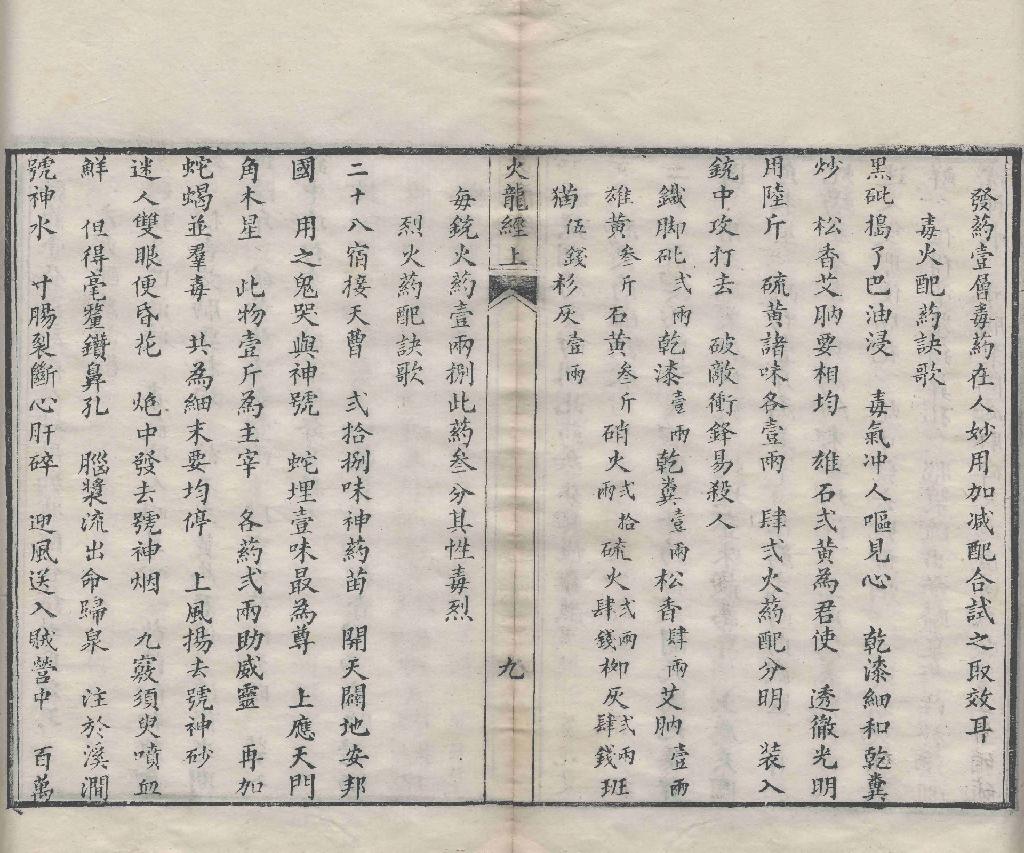 發藥壹層毒药在人妙用加减配合試之取效耳
毒火配药訣歌
黑砒搗了巴油浸　毒氣冲人嘔見心　乾漆細和乾糞
炒　松香艾朒要相均　雄石弍黃為君使　透徹光明
用陸斤　硫黃諸味各壹兩　肆弍火药配分明　装入
銃中攻打去　破敵衝鋒易殺人
鐵脚砒弍兩乾漆壹兩乾糞壹兩松香肆兩艾朒壹兩
雄黃叁斤石黃叁斤硝火弍拾兩硫火弍兩肆錢柳灰弍兩肆錢班
猫伍錢杉灰壹兩
火龍經上
九
每銃火药壹兩捌此药叁分其性毒烈
烈火药配訣歌
二十八宿接天曹　弍拾捌味神药苗　開天闢地安邦
國　用之鬼哭與神號　蛇埋壹味最為尊　上應天門
角木星　此物壹斤為主宰　各药弍兩助威靈　再加
蛇蝎並羣毒　共為細末要均停　上風揚去號神砂
迷人雙眼便昏花　炮中發去號神烟　九竅須臾噴血
鮮　但得毫釐鑽鼻孔　腦漿流出命歸泉　注於溪澗
號神水　寸腸裂斷心肝碎　迎風送入賊營中　百萬